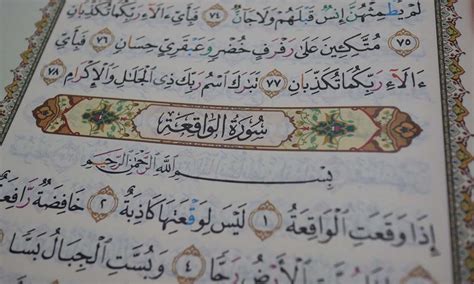 لَمْ يَطْمِثْهُنَّ إِنسٌ قَبْلَهُمْ وَلَا جَآنٌّ ٧٤ فَبِأَيِّ ءَالَآءِ رَبِّكُمَا تُكَذِّبَانِ
٧٥ مُتَّكِـِٔينَ عَلَىٰ رَفْرَفٍ خُضْرٍ وَعَبْقَرِيٍّ حِسَانٍ ٧٦ فَبِأَيِّ
ءَالَآءِ رَبِّكُمَا تُكَذِّبَانِ ٧٧ تَبَٰرَكَ ٱسْمُ رَبِّكَ ذِى ٱلْجَلَٰلِ وَٱلْإِكْرَامِ ٧٨
سُورَةُ الوَاقِعَةِ
بِسْمِ ٱللَّهِ ٱلرَّحْمَٰنِ ٱلرَّحِيمِ
إِذَا وَقَعَتِ ٱلْوَاقِعَةُ ١ لَيْسَ لِوَقْعَتِهَا كَاذِبَةٌ ٢ خَافِضَةٌ رَّافِعَةٌ
ٱلْأَرْضُ رَجًّا ٤ وَبُسَّتِ ٱلْجِبَالُ بَسًّا